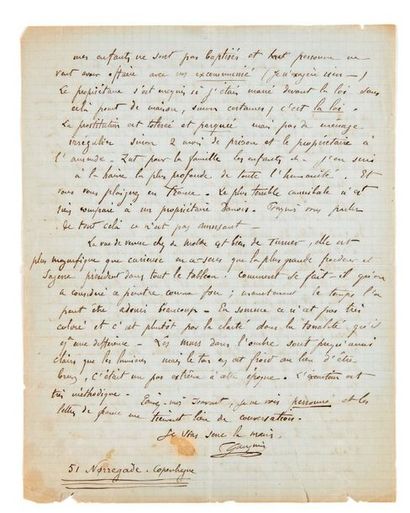 mes enfants ne sont pas baptisés et tout personne ne
veut avoir affaire avec un excommunié (Je n'exagère rien —)
Le propriétaire s'est enquis si j'étais marié devant la loi sans
celà point de maison, (sinon certaines) c'est la loi.
La prostitution est tolérée et parquée mais pas de ménage
irrégulier sinon 2 mois de prison et le propriétaire à
l'amende. Zut pour la famille les enfants &. J'en suis
à la haine la plus profonde de toute l'humanité. Et
vous vous plaignez en France. Le plus terrible cannibale n'est
rien comparé à un propriétaire Danois.
de tout celà ce n'est pas amusant.
La vue de Venise chez de est bien de Turner, elle est
plus magnifique que curieuse en ce sens que la plus grande froideur et
sagesse président dans tout le tableau. Comment se fait-il qu'on
a considéré ce peintre comme fou, maintenant le temps l'a
peut être adouci beaucoup. En somme ce n'est pas très
coloré et c'est plutôt par la clarté dans la tonalité qu'il
y a une différence. Les murs dans l'ombre sont presqu'aussi
clairs que les lumières mais le ton est froid au lieu d'être
brun, c'était un pas extrême à cette époque. L'exécution est
très méthodique.
souvent, je ne vois personne et les
lettres de France me tiennent lieu de conversation.
Je vous serre la main.
Gauguin
51 Norregade. Copenhague